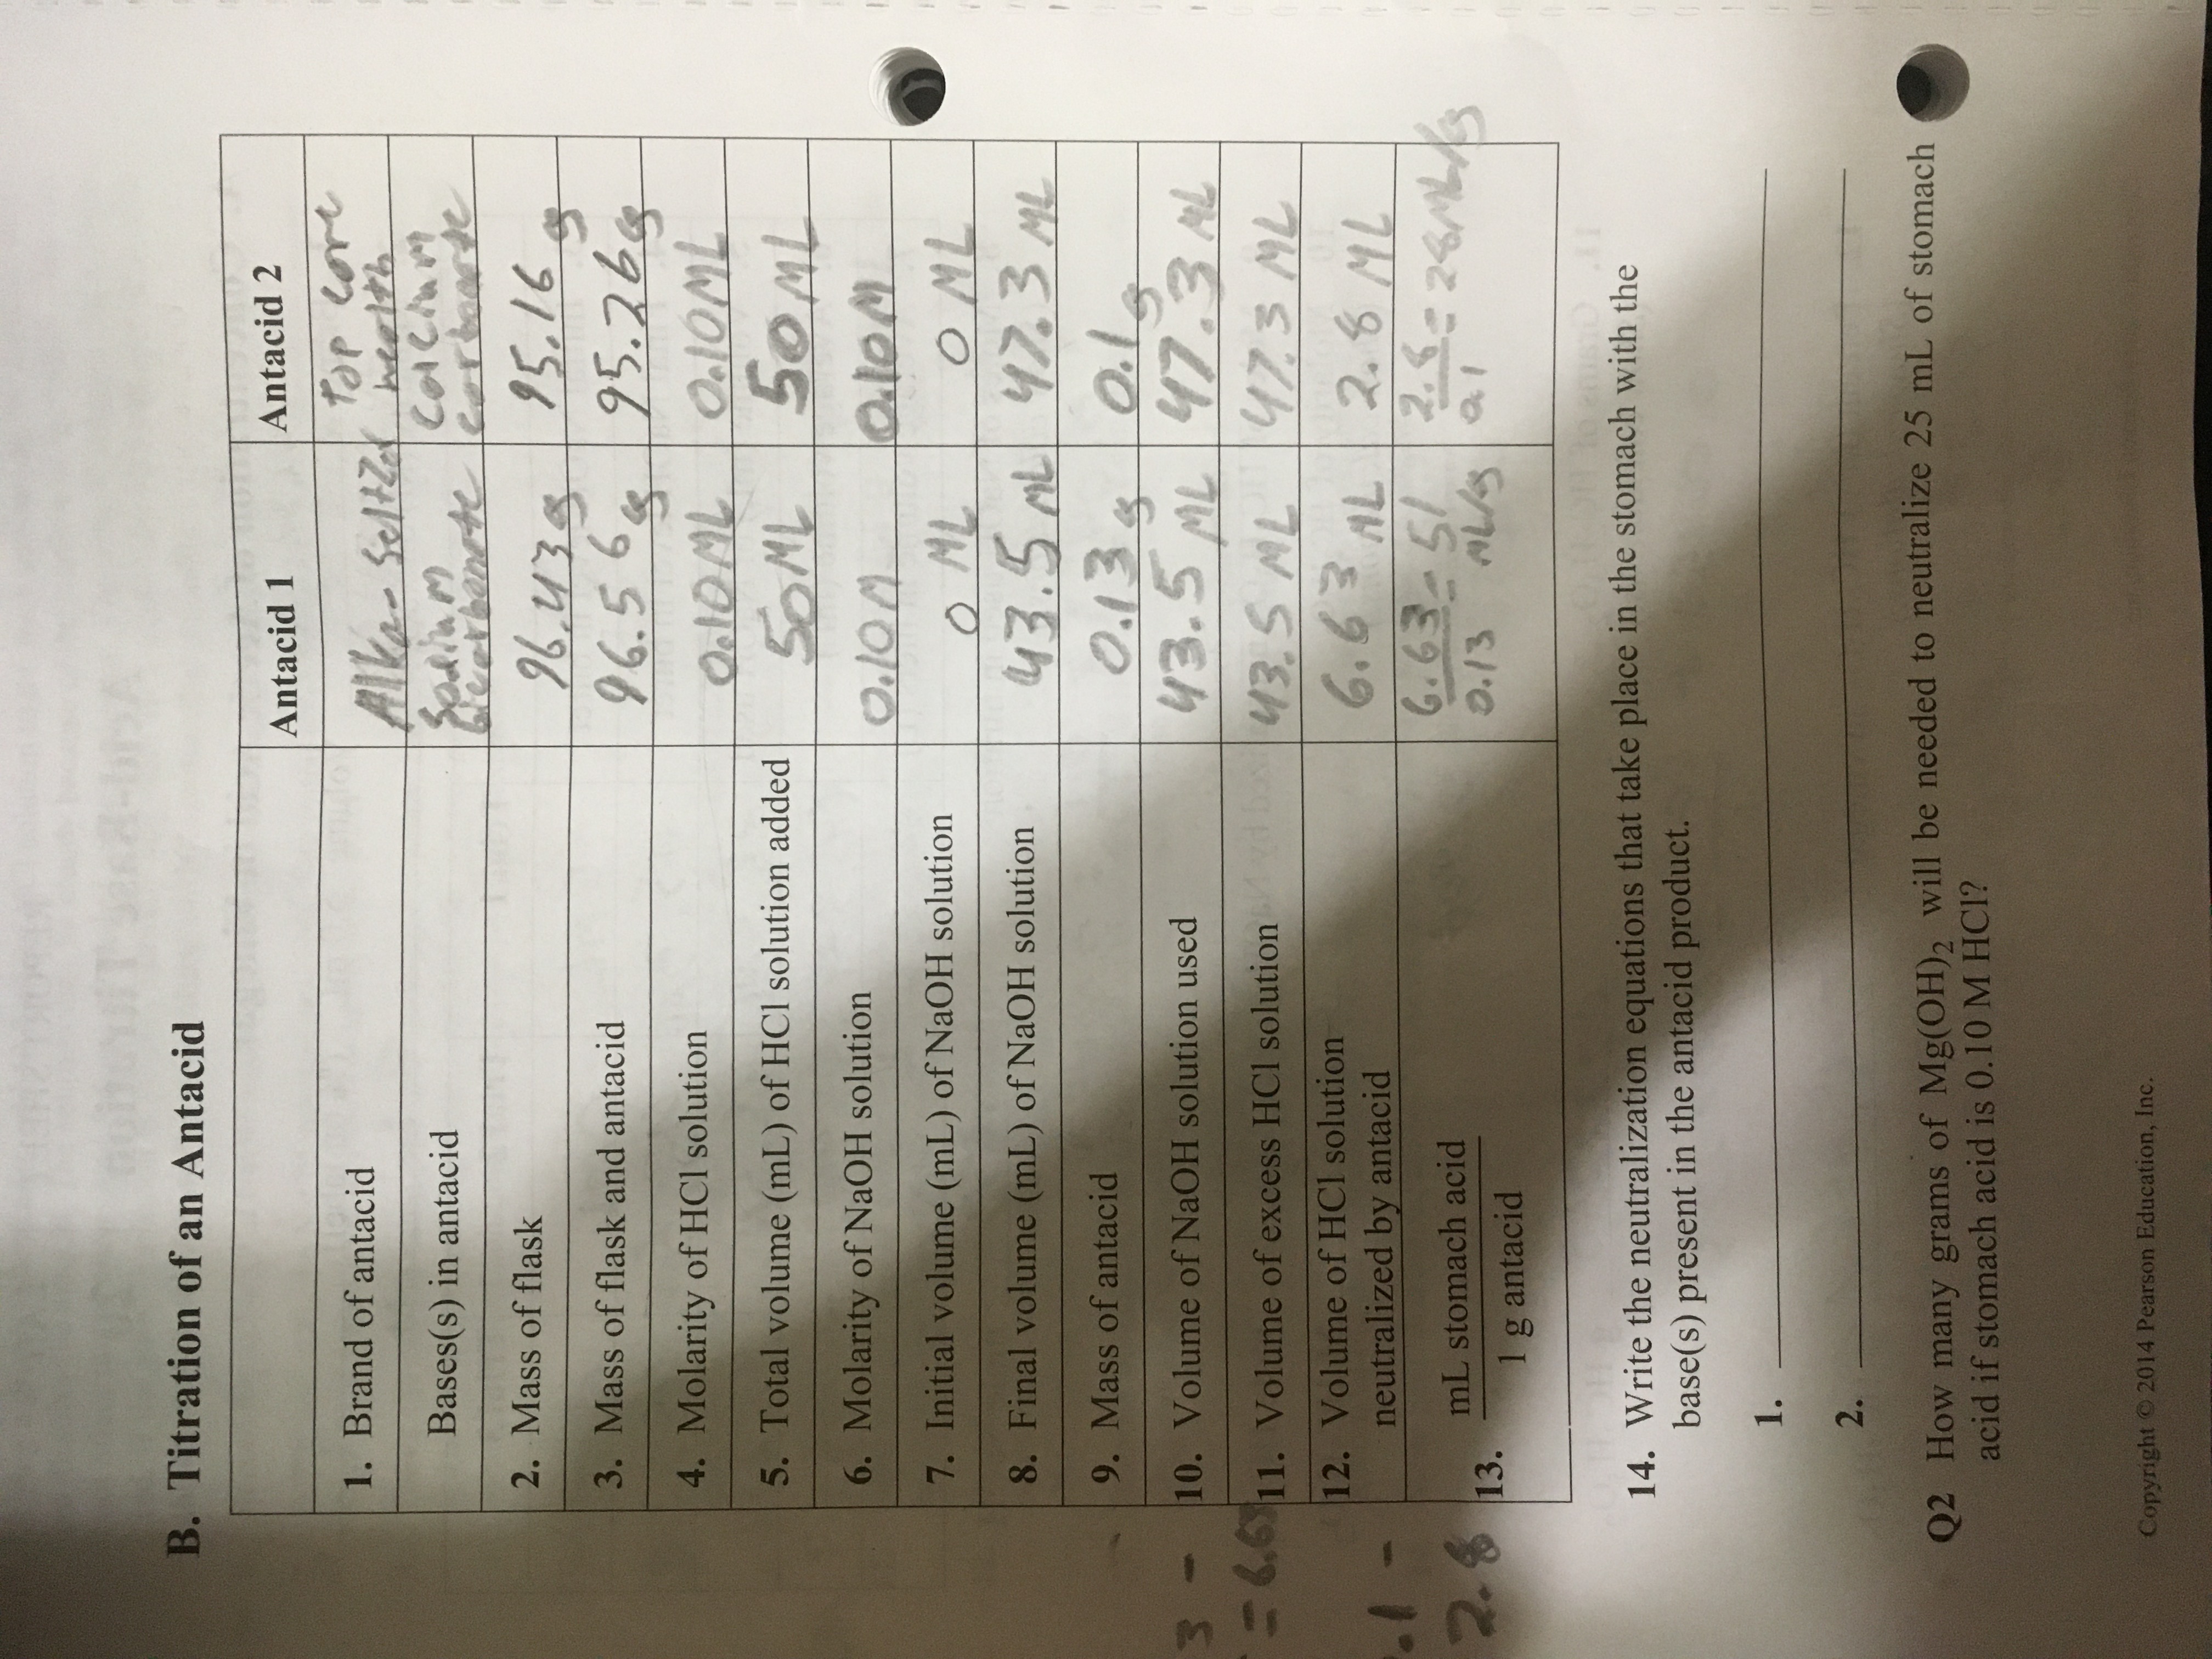 B. Titration of an Antacid
Antacid 1 Antacid 2
1. Brand of antacid Alka-Seltzer Top Care health
Bases(s) in antacid Sodium bicarbonate Calcium carbonate
2. Mass of flask 96.43 g 95.16 g
3. Mass of flask and antacid 96.56 g 95.26 g
4. Molarity of HCl solution 0.10 ML 0.10 ML
5. Total volume (mL) of HCl solution added 50 ML 50 ML
6. Molarity of NaOH solution 0.10 M 0.10 M
7. Initial volume (mL) of NaOH solution 0 ML 0 ML
8. Final volume (mL) of NaOH solution 43.5 ML 47.3 ML
9. Mass of antacid 0.13 g 0.1 g
10. Volume of NaOH solution used 43.5 ML 47.3 ML
11. Volume of excess HCl solution 43.5 ML 47.3 ML
12. Volume of HCl solution
neutralized by antacid 6.63 ML 2.8 ML
mL stomach acid 6.63 = 51 2.8 = 28 ML/g
13. 1 g antacid 0.13 ML/g 0.1
3 -
= 6.63
.1 -
2.8
14. Write the neutralization equations that take place in the stomach with the
base(s) present in the antacid product.
1.
2.
Q2 How many grams of Mg(OH)2 will be needed to neutralize 25 mL of stomach
acid if stomach acid is 0.10 M HCl?
Copyright © 2014 Pearson Education, Inc.